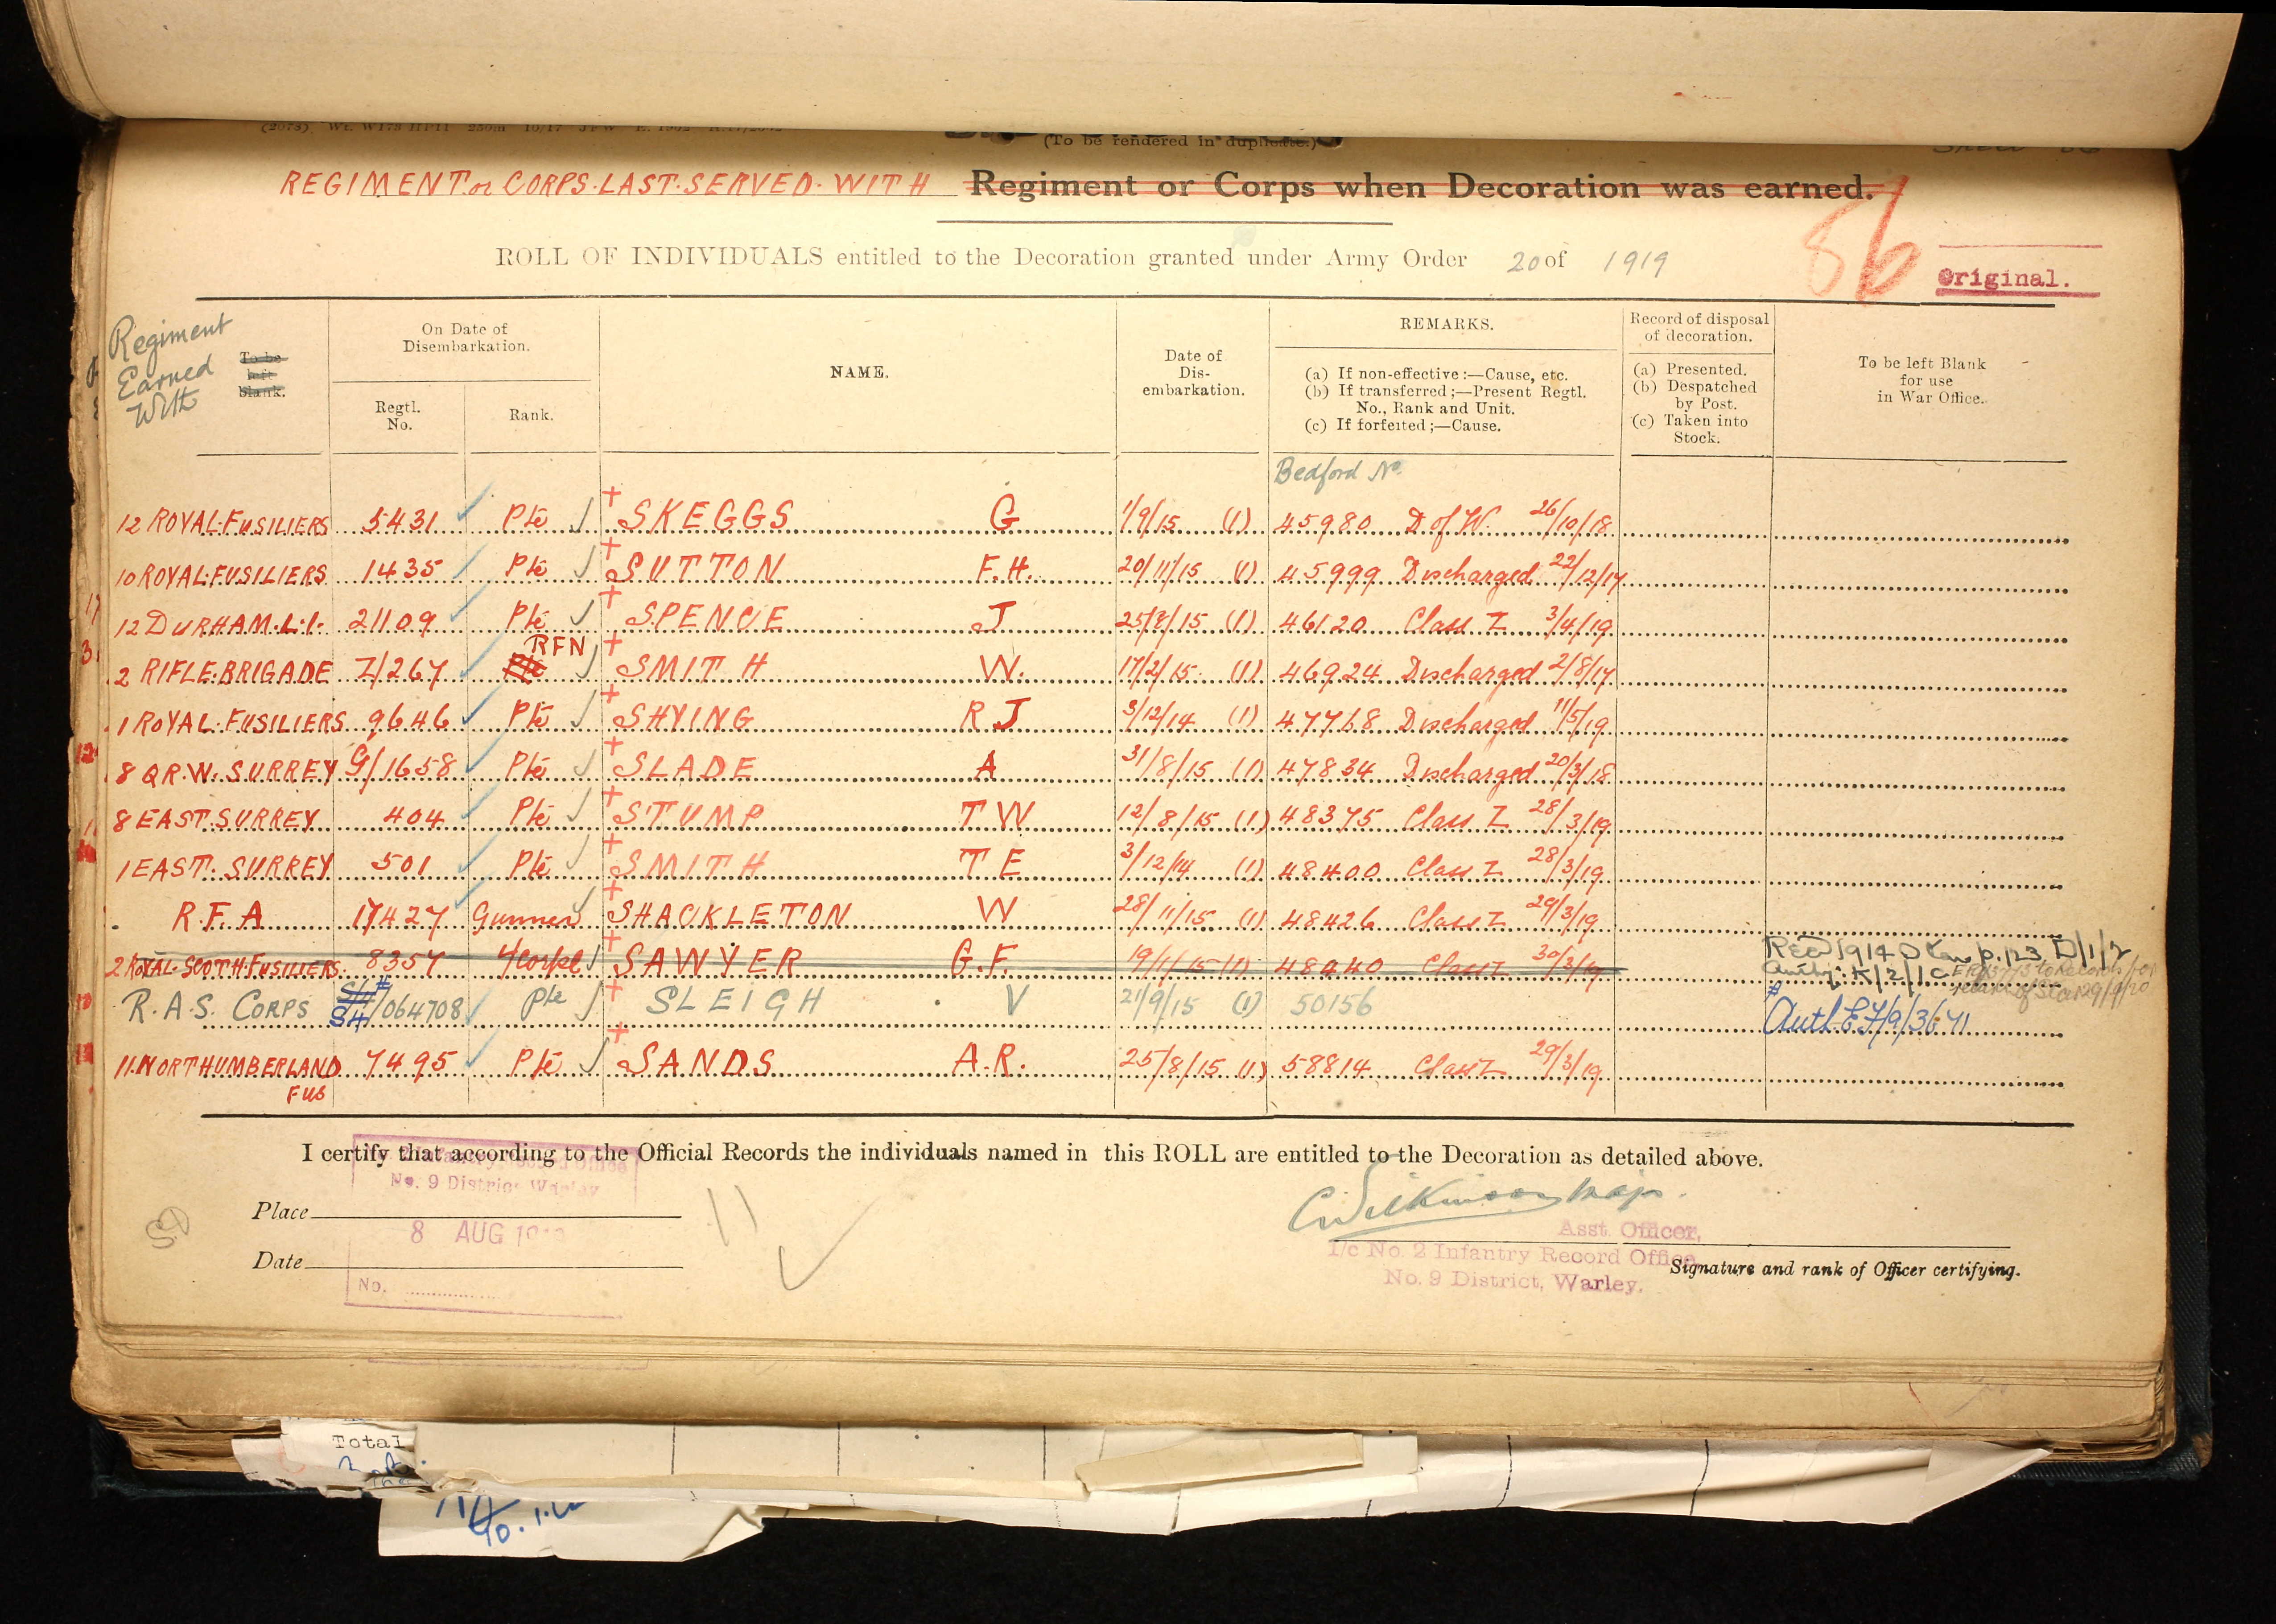 (To be rendered in duplicate.)
REGIMENT or CORPS LAST SERVED WITH Regiment or Corps when Decoration was earned.
86
ROLL OF INDIVIDUALS entitled to the Decoration granted under Army Order 20 of 1919
Original.
Regiment Earned With
To be left blank.
On Date of Disembarkation.
Regtl. No.
Rank.
NAME.
Date of Dis-embarkation.
REMARKS.
(a) If non-effective:—Cause, etc.
(b) If transferred;—Present Regtl. No., Rank and Unit.
(c) If forfeited;—Cause.
Record of disposal of decoration.
(a) Presented.
(b) Despatched by Post.
(c) Taken into Stock.
To be left Blank for use in War Office.
Bedford No.
12 ROYAL FUSILIERS 5431 Pte SKEGGS G 1/9/15 (1) 45980 D of W. 26/10/18
10 ROYAL FUSILIERS 1435 Pte SUTTON F.H. 20/11/15 (1) 45999 Discharged 22/12/17
12 DURHAM.L.I. 21109 Pte SPENCE J 25/8/15 (1) 46120 Class Z 3/4/19
2 RIFLE BRIGADE Z/267 Pte RFN SMITH W. 17/2/15 (1) 46924 Discharged 2/8/17
1 ROYAL FUSILIERS 9646 Pte SHYING R J 3/12/14 (1) 47768 Discharged 11/5/19
8 Q.R.W. SURREY G/1658 Pte SLADE A 31/8/15 (1) 47834 Discharged 20/3/18
8 EAST SURREY 404 Pte STUMP T W 12/8/15 (1) 48375 Class Z 28/3/19
1 EAST SURREY 501 Pte SMITH T E 3/12/14 (1) 48400 Class Z 28/3/19
R.F.A 17427 Gunner SHACKLETON W 28/11/15 (1) 48426 Class Z 29/3/19
2 ROYAL SCOTH FUSILIERS 8357 L/Corpl SAWYER G.F. 19/1/15 (1) 48440 Class Z 30/3/19 p.123 D/1/2
Auth: K/2/1C
R.A.S. CORPS S4/064708 Pte SLEIGH V 21/9/15 (1) 50156 Auth EF/9/3671
11 NORTHUMBERLAND FUS 7495 Pte SANDS A.R. 25/8/15 (1) 58814 Class Z 29/3/19
I certify that according to the Official Records the individuals named in this ROLL are entitled to the Decoration as detailed above.
No. 9 District Warley
Place
8 AUG
Date
No.
11
C Wilkinson Major.
Asst. Officer,
I/c No. 2 Infantry Record Office
No. 9 District, Warley.
Signature and rank of Officer certifying.
Total